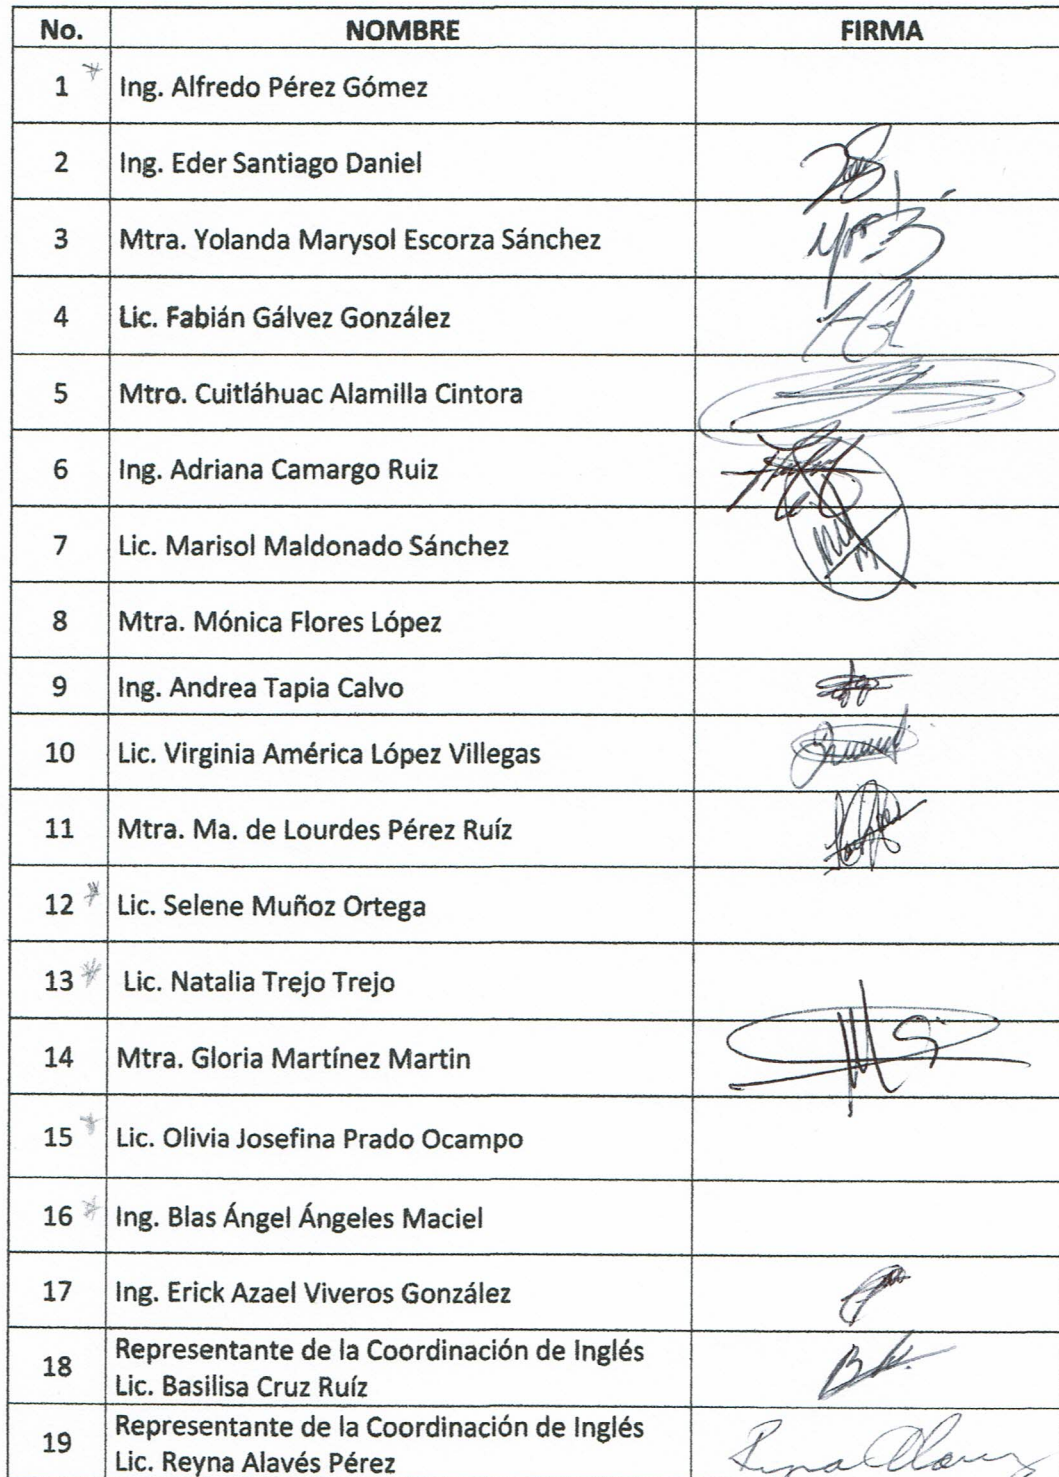 No. NOMBRE FIRMA
1 Ing. Alfredo Pérez Gómez
2 Ing. Eder Santiago Daniel
3 Mtra. Yolanda Marysol Escorza Sánchez
4 Lic. Fabián Gálvez González
5 Mtro. Cuitláhuac Alamilla Cintora
6 Ing. Adriana Camargo Ruiz
7 Lic. Marisol Maldonado Sánchez
8 Mtra. Mónica Flores López
9 Ing. Andrea Tapia Calvo
10 Lic. Virginia América López Villegas
11 Mtra. Ma. de Lourdes Pérez Ruíz
12 Lic. Selene Muñoz Ortega
13 Lic. Natalia Trejo Trejo
14 Mtra. Gloria Martínez Martin
15 Lic. Olivia Josefina Prado Ocampo
16 Ing. Blas Ángel Ángeles Maciel
17 Ing. Erick Azael Viveros González
18 Representante de la Coordinación de Inglés
Lic. Basilisa Cruz Ruíz
19 Representante de la Coordinación de Inglés
Lic. Reyna Alavés Pérez